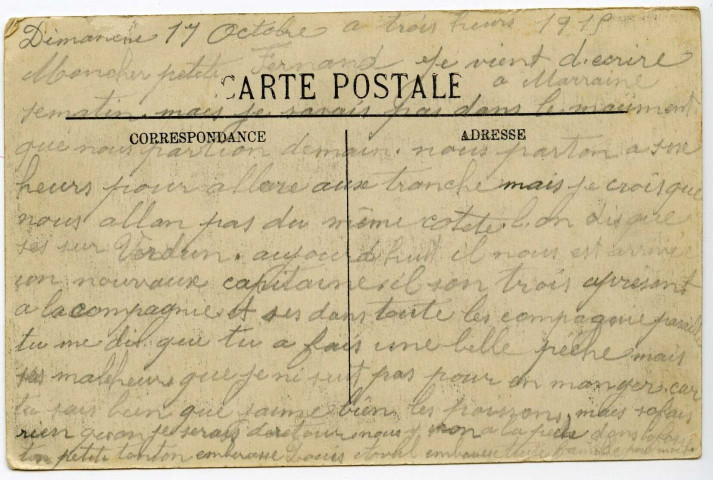 Dimanche 17 Octobre a trois heurs 1915
Moncher petit Fernand je vient d.ecrire
CARTE POSTALE a Marraine
sematin. mais je savais pas dans le moument
CORRESPONDANCE ADRESSE
que nous partion demain. nous parton a six
heurs pour allere aux tranche mais je crois que
nous allan pas du même cotete. l.on dis que
ses sur Verdun. aujourd huit il nous est arrivée
un nouvaux capitaine. il son trois apresent
a la compagnie et ses dans toute les compagnie
tu me dit que tu a fais une belle pêche mais
ses maleheur que je ni suit pas pour en manger. car
tu sais bien que jaime bien les poissons mais sa fais
rien quan je serais deretour nous iron a la peche dans
ton petit tonton embrasse Louis embrasse toute famille pour moi